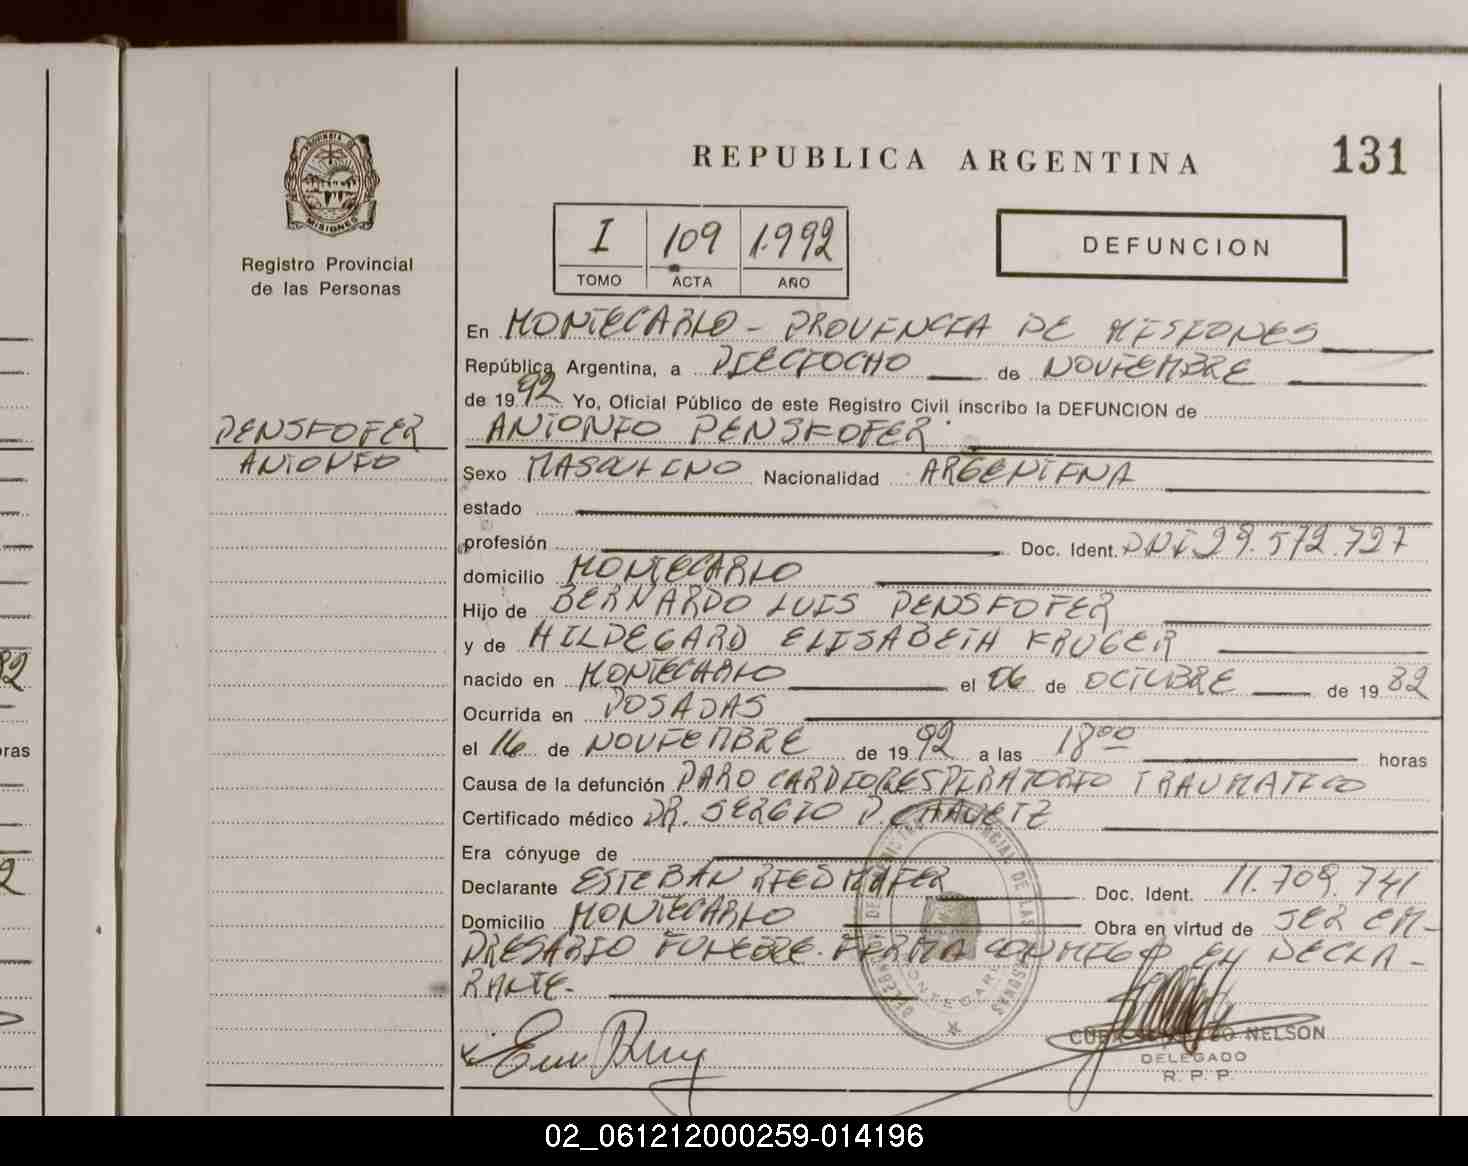 PROVINCIA DE
MISIONES
Registro Provincial
de las Personas
REPUBLICA ARGENTINA
131
I 109 1.992
TOMO ACTA AÑO
DEFUNCION
En MONTECARLO - PROVINCIA DE MISIONES
República Argentina, a DIECIOCHO de NOVIEMBRE
de 1992 Yo, Oficial Público de este Registro Civil inscribo la DEFUNCION de
PENSIOFER
ANTONIO
ANTONIO PENSIOFER
Sexo MASCULINO Nacionalidad ARGENTINA
estado
profesión Doc. Ident. DNI 29.572.727
domicilio MONTECARLO
Hijo de BERNARDO LUIS PENSIOFER
y de HILDEGARD ELISABETH KRUGER
nacido en MONTECARLO el 06 de OCTUBRE de 1982
Ocurrida en POSADAS
el 16 de NOVIEMBRE de 1992 a las 18 00 horas
Causa de la defunción PARO CARDIORESPIRATORIO TRAUMATICO
Certificado médico DR. SERGIO D. CHAVETZ
Era cónyuge de
Declarante ESTEBAN RIEDMAIER Doc. Ident. 11.709.741
Domicilio MONTECARLO Obra en virtud de SER EM-
PRESARIO FUNEBRE. FIRMA CONMIGO EL DECLA-
RANTE-
NELSON
DELEGADO
R. P. P.
92
horas
2
02_061212000259-014196